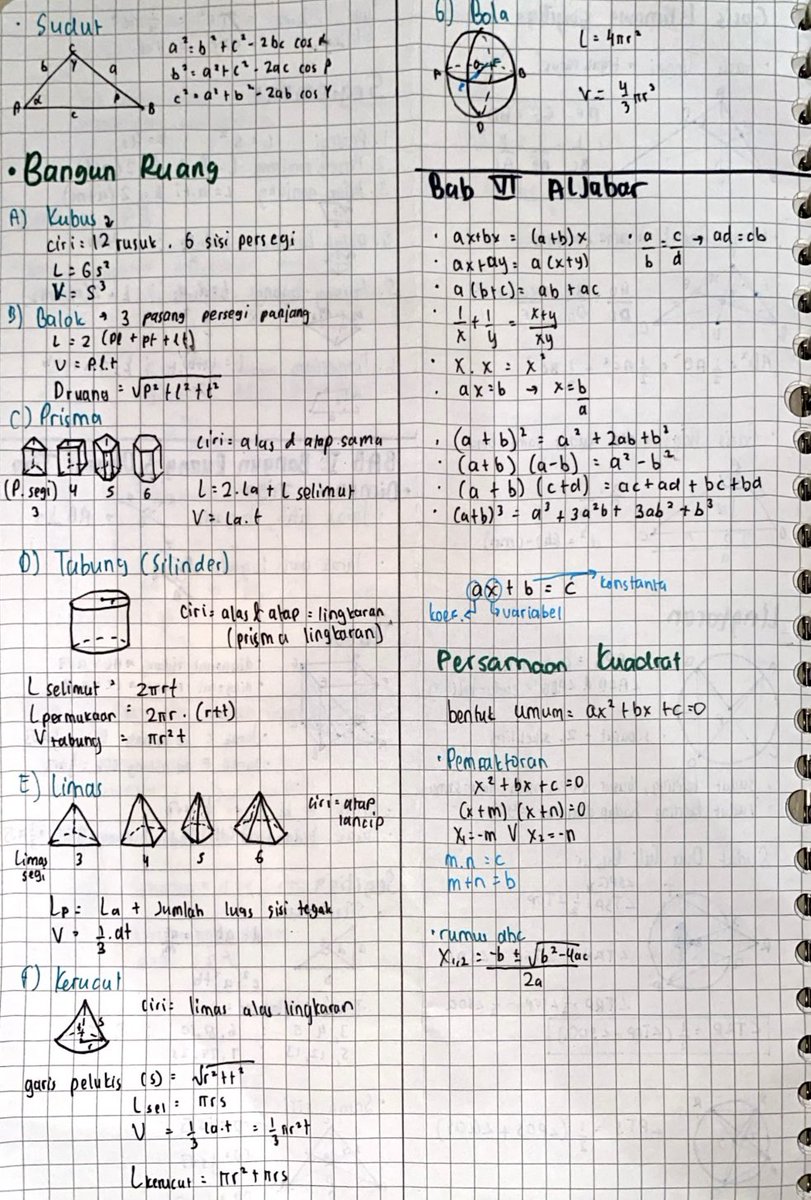 • Sudut
C
b γ a
A α β B
c
a² = b² + c² - 2bc cos α
b² = a² + c² - 2ac cos β
c² = a² + b² - 2ab cos γ
• Bangun Ruang
A) Kubus
ciri = 12 rusuk . 6 sisi persegi
L = 6s²
V = s³
B) Balok → 3 pasang persegi panjang
L = 2 (pl + pt + lt)
V = p.l.t
D ruang = √p² + l² + t²
C) Prisma
(P. segi) 3 4 5 6
ciri = alas & atap sama
L = 2. La + L selimut
V = La . t
D) Tabung (Silinder)
r
ciri = alas & atap = lingkaran
(prisma lingkaran)
L selimut = 2πrt
L permukaan = 2πr . (r+t)
V tabung = πr²t
E) Limas
ciri = atap
lancip
Limas segi 3 4 5 6
Lp = La + Jumlah luas sisi tegak
V = 1/3 . at
F) Kerucut
t s
r
ciri = limas alas lingkaran
garis pelukis (s) = √r² + t²
L sel = πrs
V = 1/3 La.t = 1/3 πr²t
L kerucut = πr² + πrs
6) Bola
A B
D
L = 4πr²
V = 4/3 πr³
Bab VI Aljabar
• ax+bx = (a+b)x • a/b = c/d → ad = cb
• ax+ay = a(x+y)
• a(b+c) = ab + ac
• 1/x + 1/y = x+y/xy
• x . x = x²
• ax = b → x = b/a
• (a + b)² = a² + 2ab + b²
• (a+b) (a-b) = a² - b²
• (a + b) (c+d) = ac + ad + bc + bd
• (a+b)³ = a³ + 3a²b + 3ab² + b³
ax + b = c → konstanta
koef. variabel
Persamaan Kuadrat
bentuk umum = ax² + bx + c = 0
• Pemfaktoran
x² + bx + c = 0
(x+m) (x+n) = 0
x₁ = -m V x₂ = -n
m.n = c
m+n = b
• rumus abc
x₁,₂ = -b ± √b² - 4ac
2a